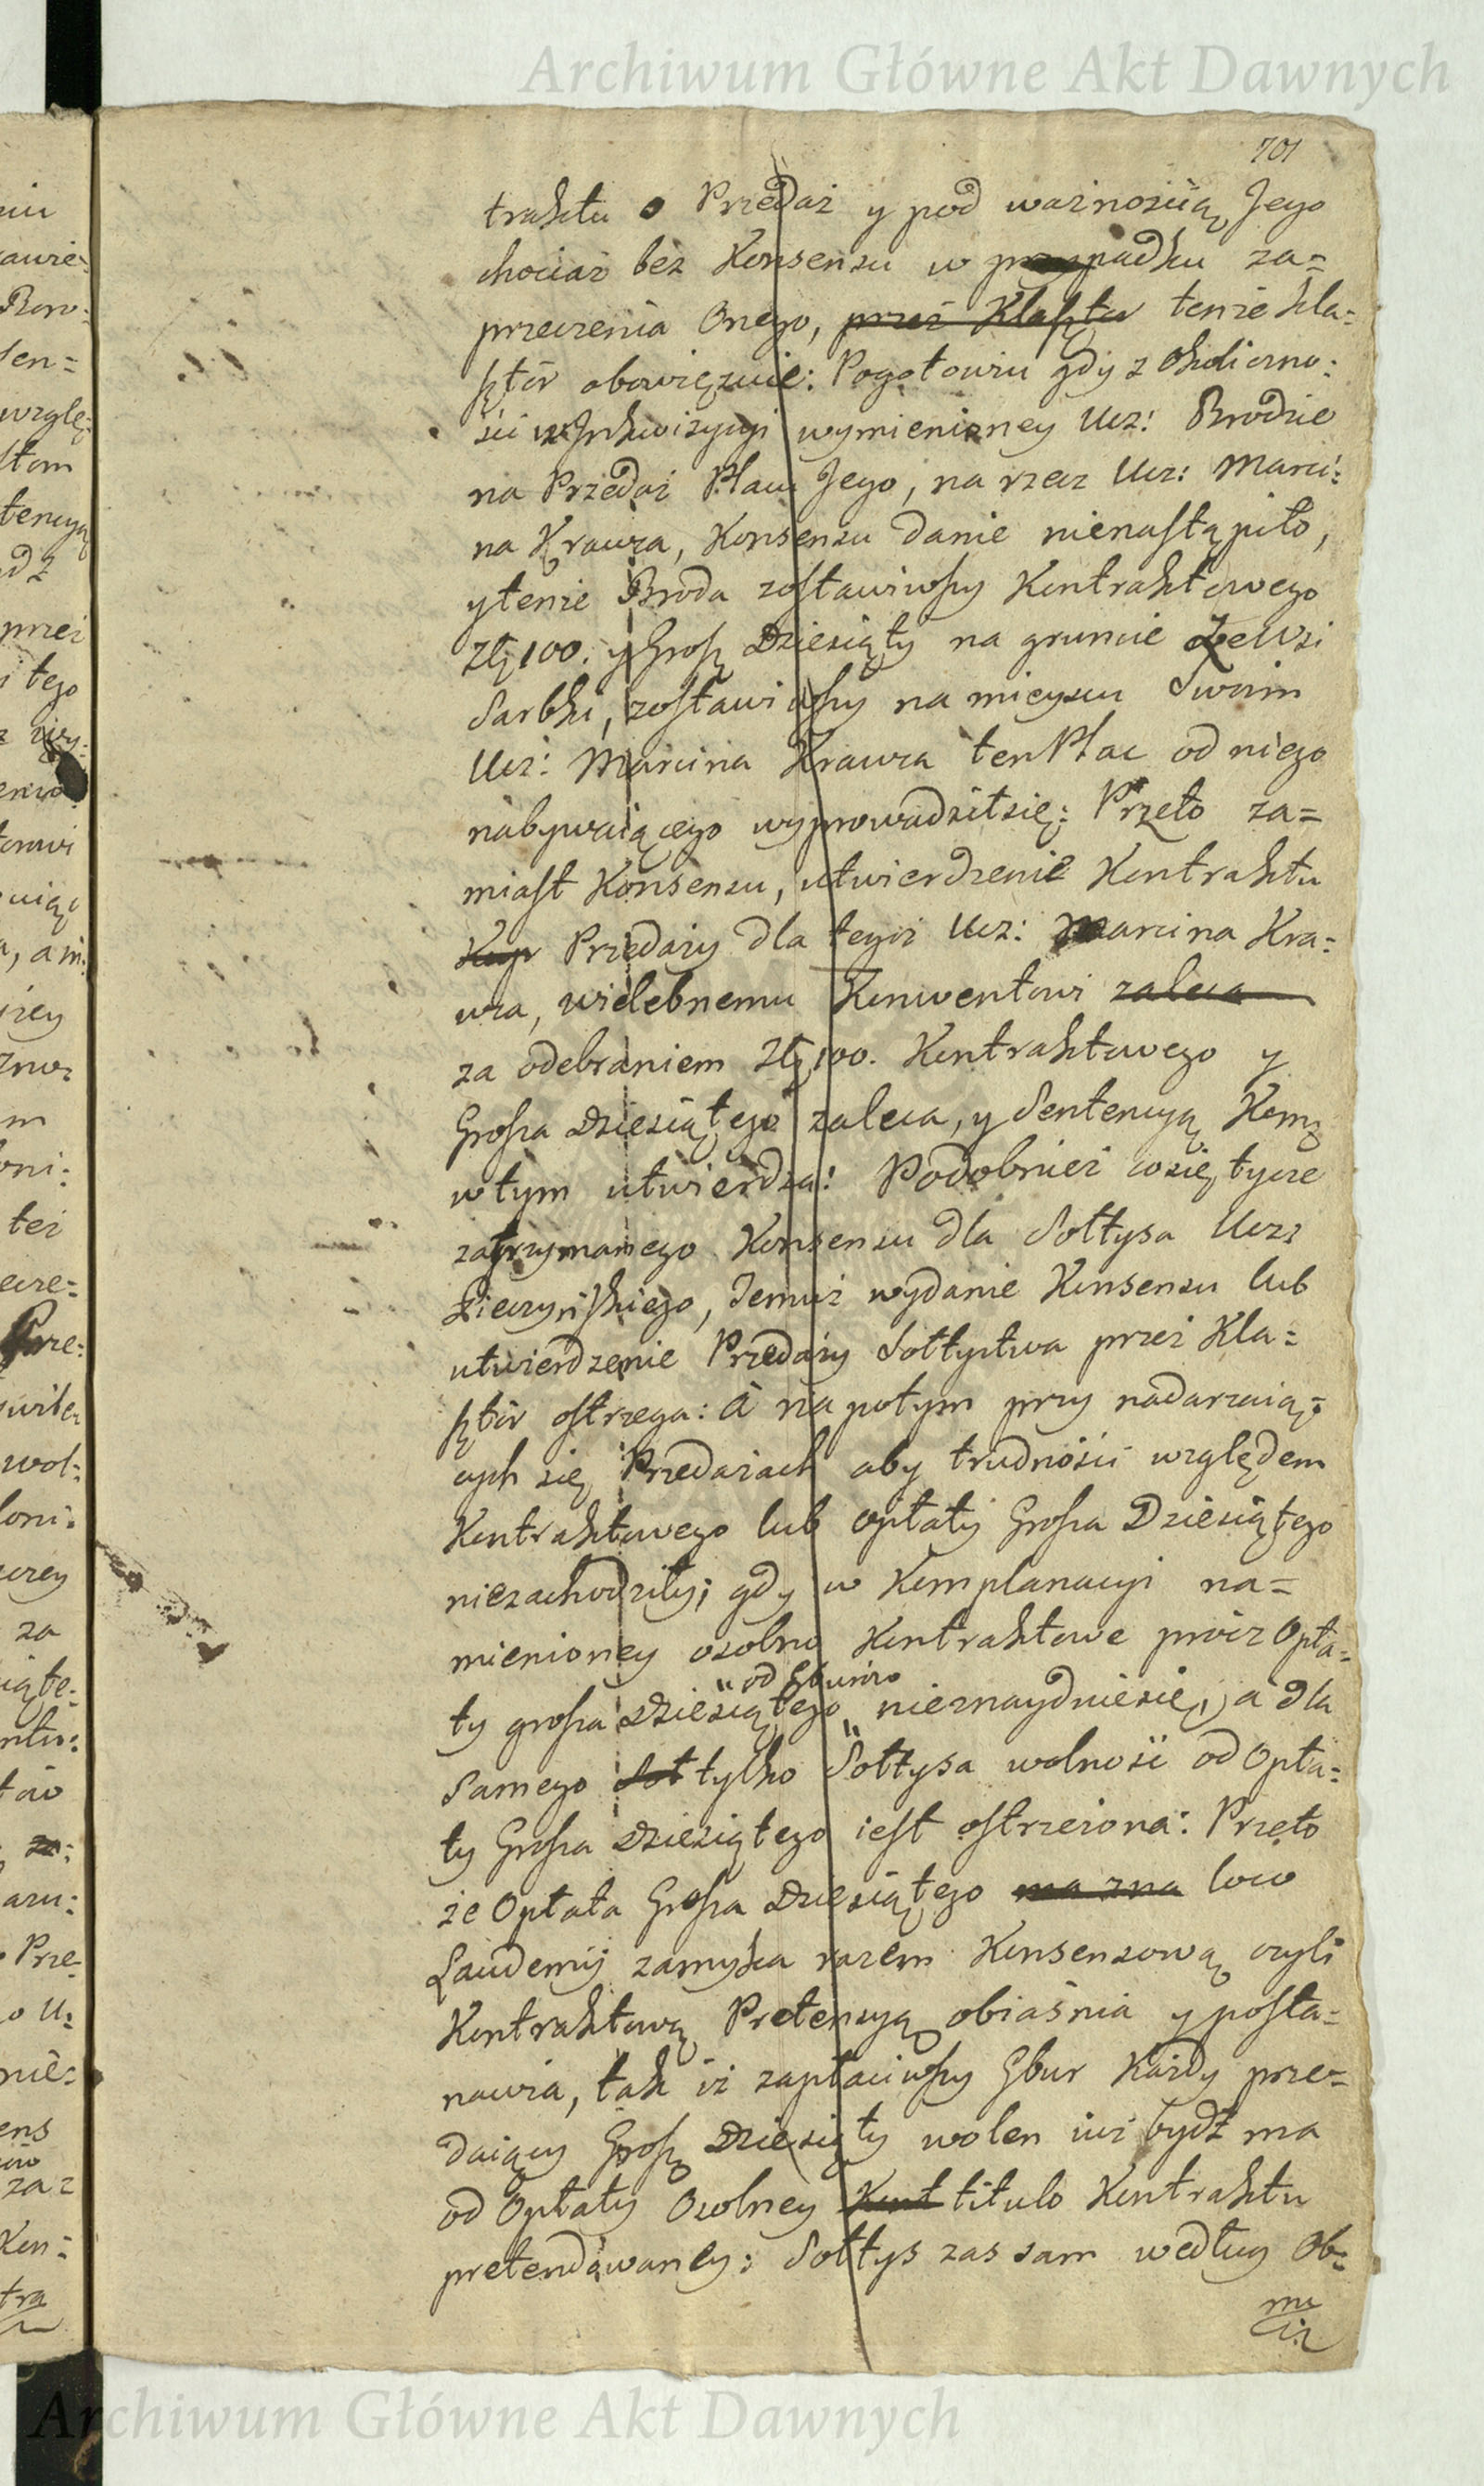 Archiwum Główne Akt Dawnych
701
traktu o Przedaż y pod ważnością Jego
chociaż bez Konsensu w przypadku za=
przeczenia Onego, przez Klasztor tenże Kla=
sztor obowięzuie: Pogotowiu gdy z Okoliczno:
ści w Inkwizycyi wymienioney Ucz: Brodzie
na Przedaż Placu Jego, na rzecz Ucz: Marci:
na Krawca, Konsensu danie nienastąpiło,
ytenże Broda zostawiwszy Kontraktowego
Złt 100. y Grosz Dziesiąty na gruncie ze Wsi
Sarbki, zostawiwszy na mieyscu Swoim
Ucz: Marcina Krawca ten Plac od niego
nabywaiącego wyprowadziłsię: Przeto za=
miast Konsensu, utwierdzenie Kontraktu
Kup Przedaży dla tegoż Ucz: Marcina Kra=
wca, wielebnemu Konwentowi zaleca
za odebraniem Złt 100. Kontraktowego y
Grosza Dziesiątego zaleca, y Sentencyą Kom̃
wtym utwierdza: Podobnież cosię tycze
zatrzymanego Konsensu dla Sołtysa Ucz:
Jemuż wydanie Konsensu lub
utwierdzenie Przedaży Sołtystwa przez Kla=
sztor ostrzega: A na potym przy nadarzaią=
cych się Przedażach aby trudności względem
Kontraktowego lub opłaty Grosza Dziesiątego
niezachodziły; gdy w Komplanacyi na=
mienioney osobno Kontraktowe prócz Opła=
"od Gburów
ty grosza Dziesiątego " nieznayduiesię, a dla
Samego Soł tylko Sołtysa wolność od Opła=
ty Grosza Dziesiątego iest ostrzeżona: Przeto
że Opłata Grosza Dziesiątego ma zna loco
Laudemij zamyka razem Konsensową czyli
Kontraktową Pretensyą obiaśnia y posta=
nawia, tak iż zapłaciwszy Gbur Każdy prze=
daiący Grosz Dziesiąty wolen iuż bydź ma
od Opłaty Osobney Kont titulo Kontraktu
pretendowaney: Sołtys zas sam według Ob=
Archiwum Główne Akt Dawnych